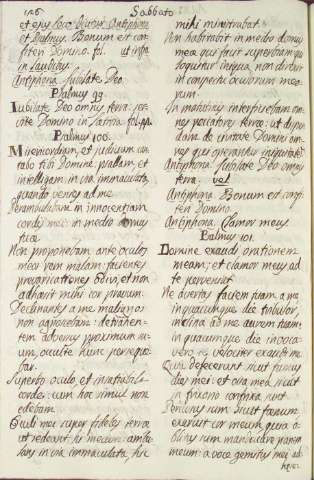 126
Sabbato
et ejus loco dicitur Antiphona
et Psalmus. Bonum est con
fiteri Domino. fol. ut infra
in Laudibus
Antiphona Jubilate Deo
Psalmus 99.
Iubilate Deo omnis terra. ser
vite Domino in lætitia. fol.
Psalmus 100.
Misericordiam, et judicium can
tabo tibi Domine. psallam, et
intelligam in via immaculata,
quando venies ad me.
Perambulabam in innocentiam
cordis mei: in medio domus
meæ.
Non proponebam ante oculos
meos rem malam: facientes
prævaricationes odivi, et non
adhæsit mihi cor pravum.
Declinantes a me malignos
non agnoscebam: detrahen=
tem adversus proximum su
um, occulte hunc perseque
bar.
Superbo oculo, et insatiabili
corde: cum hoc simul non
edebam.
Oculi mei super fideles terræ
ut sedeant hi mecum: ambu
lans in via immaculata, hic
mihi ministrabat.
Non habitabit in medio domus
meæ qui facit superbiam: qui
loquitur iniqua, non direxit
in conspectu oculorum meo
rum.
In matutino interficiebam om
nes peccatores terræ: ut disper
dam de civitate Domini om
nes qui operantur iniquitatem
Antiphona Jubilate Deo omnis
terra. vel
Antiphona Bonum est confi
teri Domino.
Antiphona Clamor meus
Psalmus 101.
Domine exaudi orationem
meam; et clamor meus ad
te perveniat.
Ne avertas faciem tuam a me
in quacumque die tribulor,
inclina ad me aurem tuam:
in quacumque die invoca
vero te, velociter exaudi me
Quia defecerunt sicut fumus
dies mei: et ossa mea, sicut
in frixorio confixa sunt
Percussus sum sicut fænum
exaruit cor meum, quia o
blitus sum manducare panem
meum: a voce gemitus mei ad